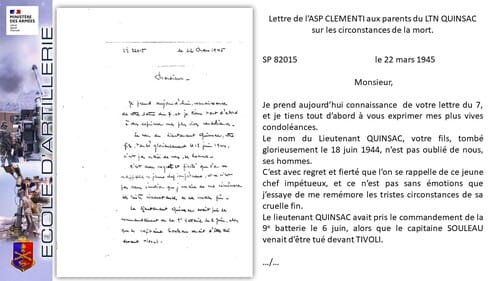 MINISTÈRE
DES ARMÉES
ECOLE D'ARTILLERIE
SP 82015 le 22 Mars 1945
Monsieur,
Je prend aujourd'hui, connaissance
de votre lettre du 7, et je tiens tout d'abord
à vous exprimer mes plus vives condoléances.
Le nom du Lieutenant Quinsac, votre
fils, tombé glorieusement le 18 juin 1944,
n'est pas oublié de nous, ses hommes.
C'est avec regret et fierté que l'on se
rappelle ce jeune chef impétueux, et ce n'est
pas sans
Le lieutenant Quinsac avait pris le
commandement de la 9e batterie le 6 juin, alors
que le capitaine Souleau venait d'être tué
devant Tivoli.
Lettre de l'ASP CLEMENTI aux parents du LTN QUINSAC
sur les circonstances de la mort.
SP 82015 le 22 mars 1945
Monsieur,
Je prend aujourd'hui connaissance de votre lettre du 7,
et je tiens tout d'abord à vous exprimer mes plus vives
condoléances.
Le nom du Lieutenant QUINSAC, votre fils, tombé
glorieusement le 18 juin 1944, n'est pas oublié de nous,
ses hommes.
C'est avec regret et fierté que l'on se rappelle de ce jeune
chef impétueux, et ce n'est pas sans émotions que
j'essaye de me remémore les tristes circonstances de sa
cruelle fin.
Le lieutenant QUINSAC avait pris le commandement de la
9e batterie le 6 juin, alors que le capitaine SOULEAU
venait d'être tué devant TIVOLI.
.../...